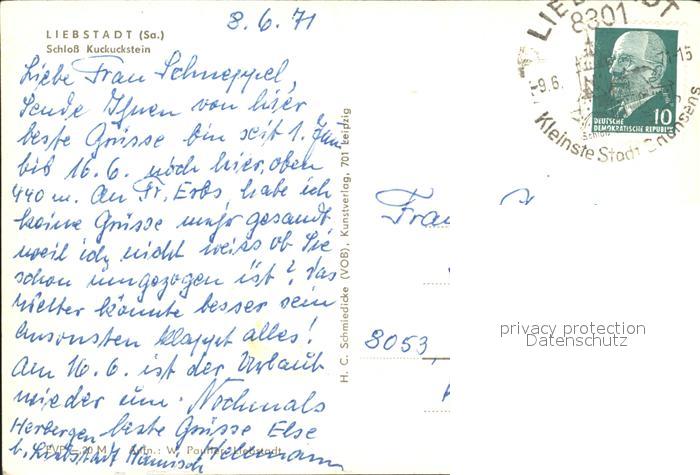 8.6.71
LIEBSTADT (Sa.)
Schloß Kuckuckstein
Liebe Frau Schneppel,
Sende Ihnen von hier
beste Grüsse bin seit 1. Juni
bis 16.6. noch hier, oben
440 m. An Fr. Erbs, habe ich
keine Grüsse mehr gesandt
weil ich nicht weiss ob Sie
schon umgezogen ist? Das
Wetter könnte besser sein
Ansonsten klappt alles!
Am 16.6. ist der Urlaub
wieder um. Nochmals
Herbergen beste Grüsse Else
b. Liebstadt
EVP – 20 M Aufn.: W. Liebstadt
H. C. Schmiedicke (VOB), Kunstverlag, 701 Leipzig
LIEBSTADT
8301
-9.6.
-15
Kleinste Stadt Sachsens
DEUTSCHE
DEMOKRATISCHE REPUBLIK
10
Frau
8053,
privacy protection
Datenschutz